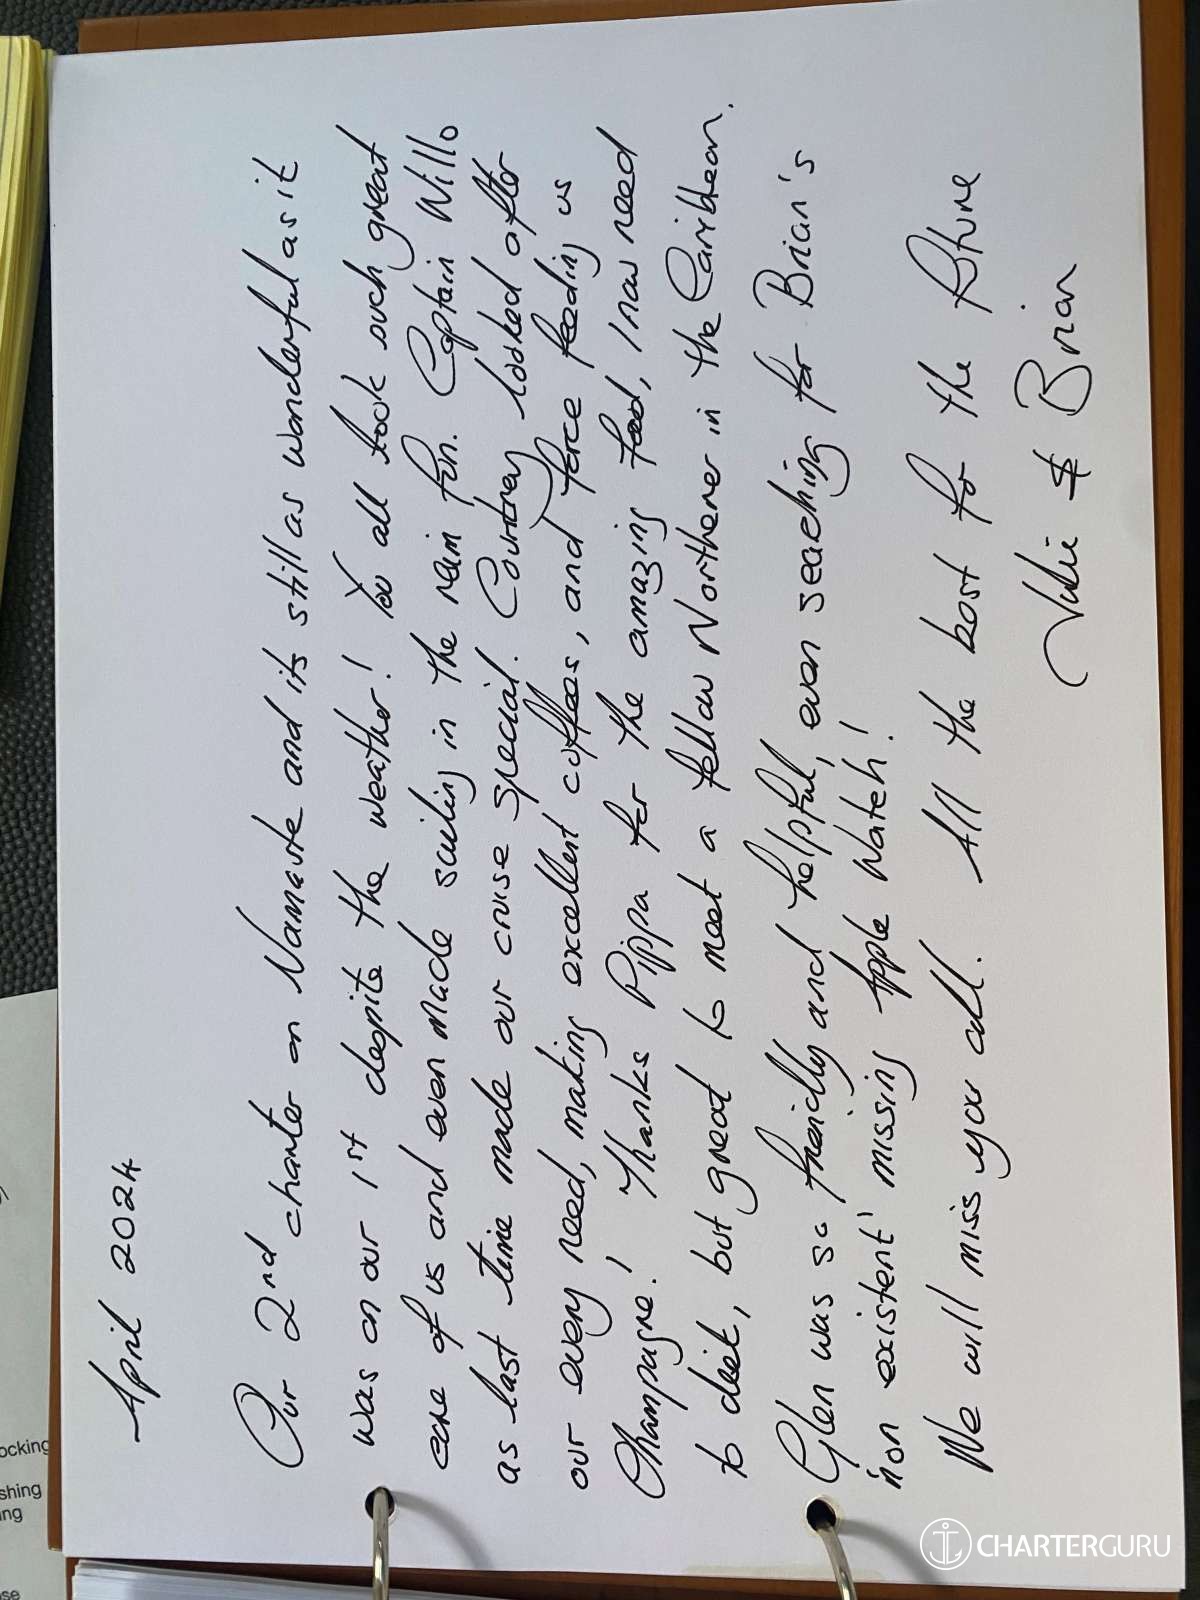 April 2024
Our 2nd charter on Namaste and its still as wonderful as it
was on our 1st despite the weather! You all took such great
care of us and even made sailing in the rain fun. Captain Willo
as last time made our cruise special. Courtney looked after
our every need, making excellent coffees, and force feeding us
Champagne! Thanks Pippa for the amazing food, I now need
to deit, but great to meet a fellow Northerner in the Caribbean.
Glen was so freidly and helpful, even seaching for Brian's
'non existent' missing Apple Watch!
We will miss you all. All the best for the future
Julie & Brian
ocking
shing
ing
se
CHARTERGURU